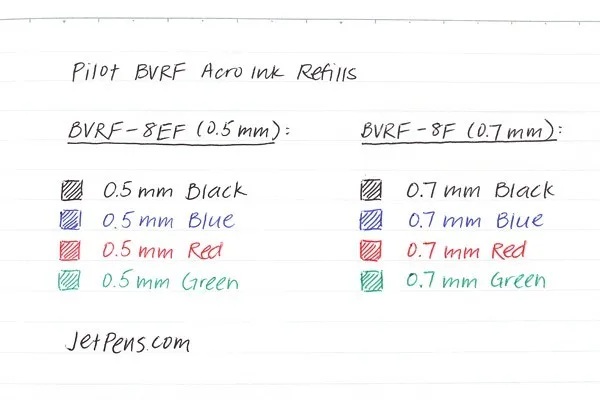 Pilot BVRF Acro Ink Refills
BVRF-8EF (0.5 mm):
0.5 mm Black
0.5 mm Blue
0.5 mm Red
0.5 mm Green
BVRF-8F (0.7 mm):
0.7 mm Black
0.7 mm Blue
0.7 mm Red
0.7 mm Green
JetPens.com